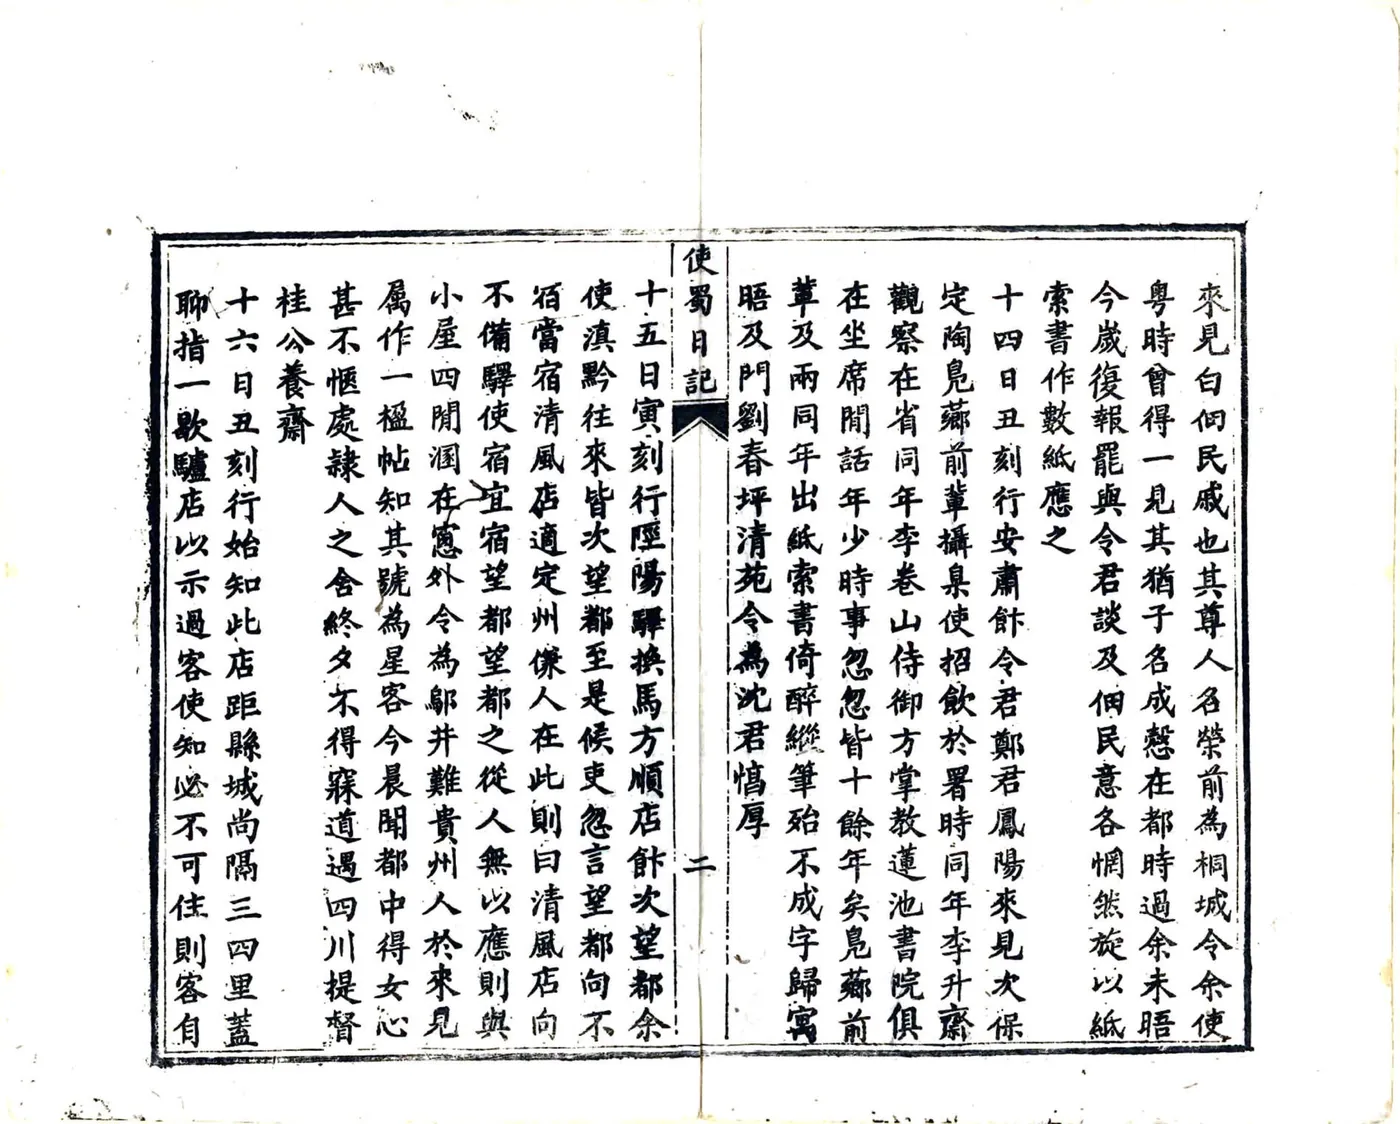 來見白佃民戚也其尊人名榮前為桐城令余使
粵時曾得一見其猶子名成慤在都時過余未晤
今歲復報罷與令君談及佃民意各惘然旋以紙
索書作數紙應之
十四日丑刻行安肅飰令君鄭君鳳陽來見次保
定陶鳧薌前輩攝臬使招飲於署時同年李升齋
觀察在省同年李卷山侍御方掌教蓮池書院俱
在坐席閒話年少時事忽忽皆十餘年矣鳧薌前
輩及兩同年出紙索書倚醉縱筆殆不成字歸寓
晤及門劉春坪清苑令為沈君愭厚
使蜀日記
二
十五日寅刻行陘陽驛換馬方順店飰次望都余
使滇黔往來皆次望都至是候吏忽言望都向不
宿當宿清風店適定州傔人在此則曰清風店向
不備驛使宿宜宿望都望都之從人無以應則與
小屋四閒溷在窻外令為鄔井難貴州人於來見
属作一楹帖知其號為星客今晨聞都中得女心
甚不愜處隷人之舍終夕不得寐道遇四川提督
桂公養齋
十六日丑刻行始知此店距縣城尚隔三四里蓋
聊指一歇驢店以示過客使知必不可住則客自